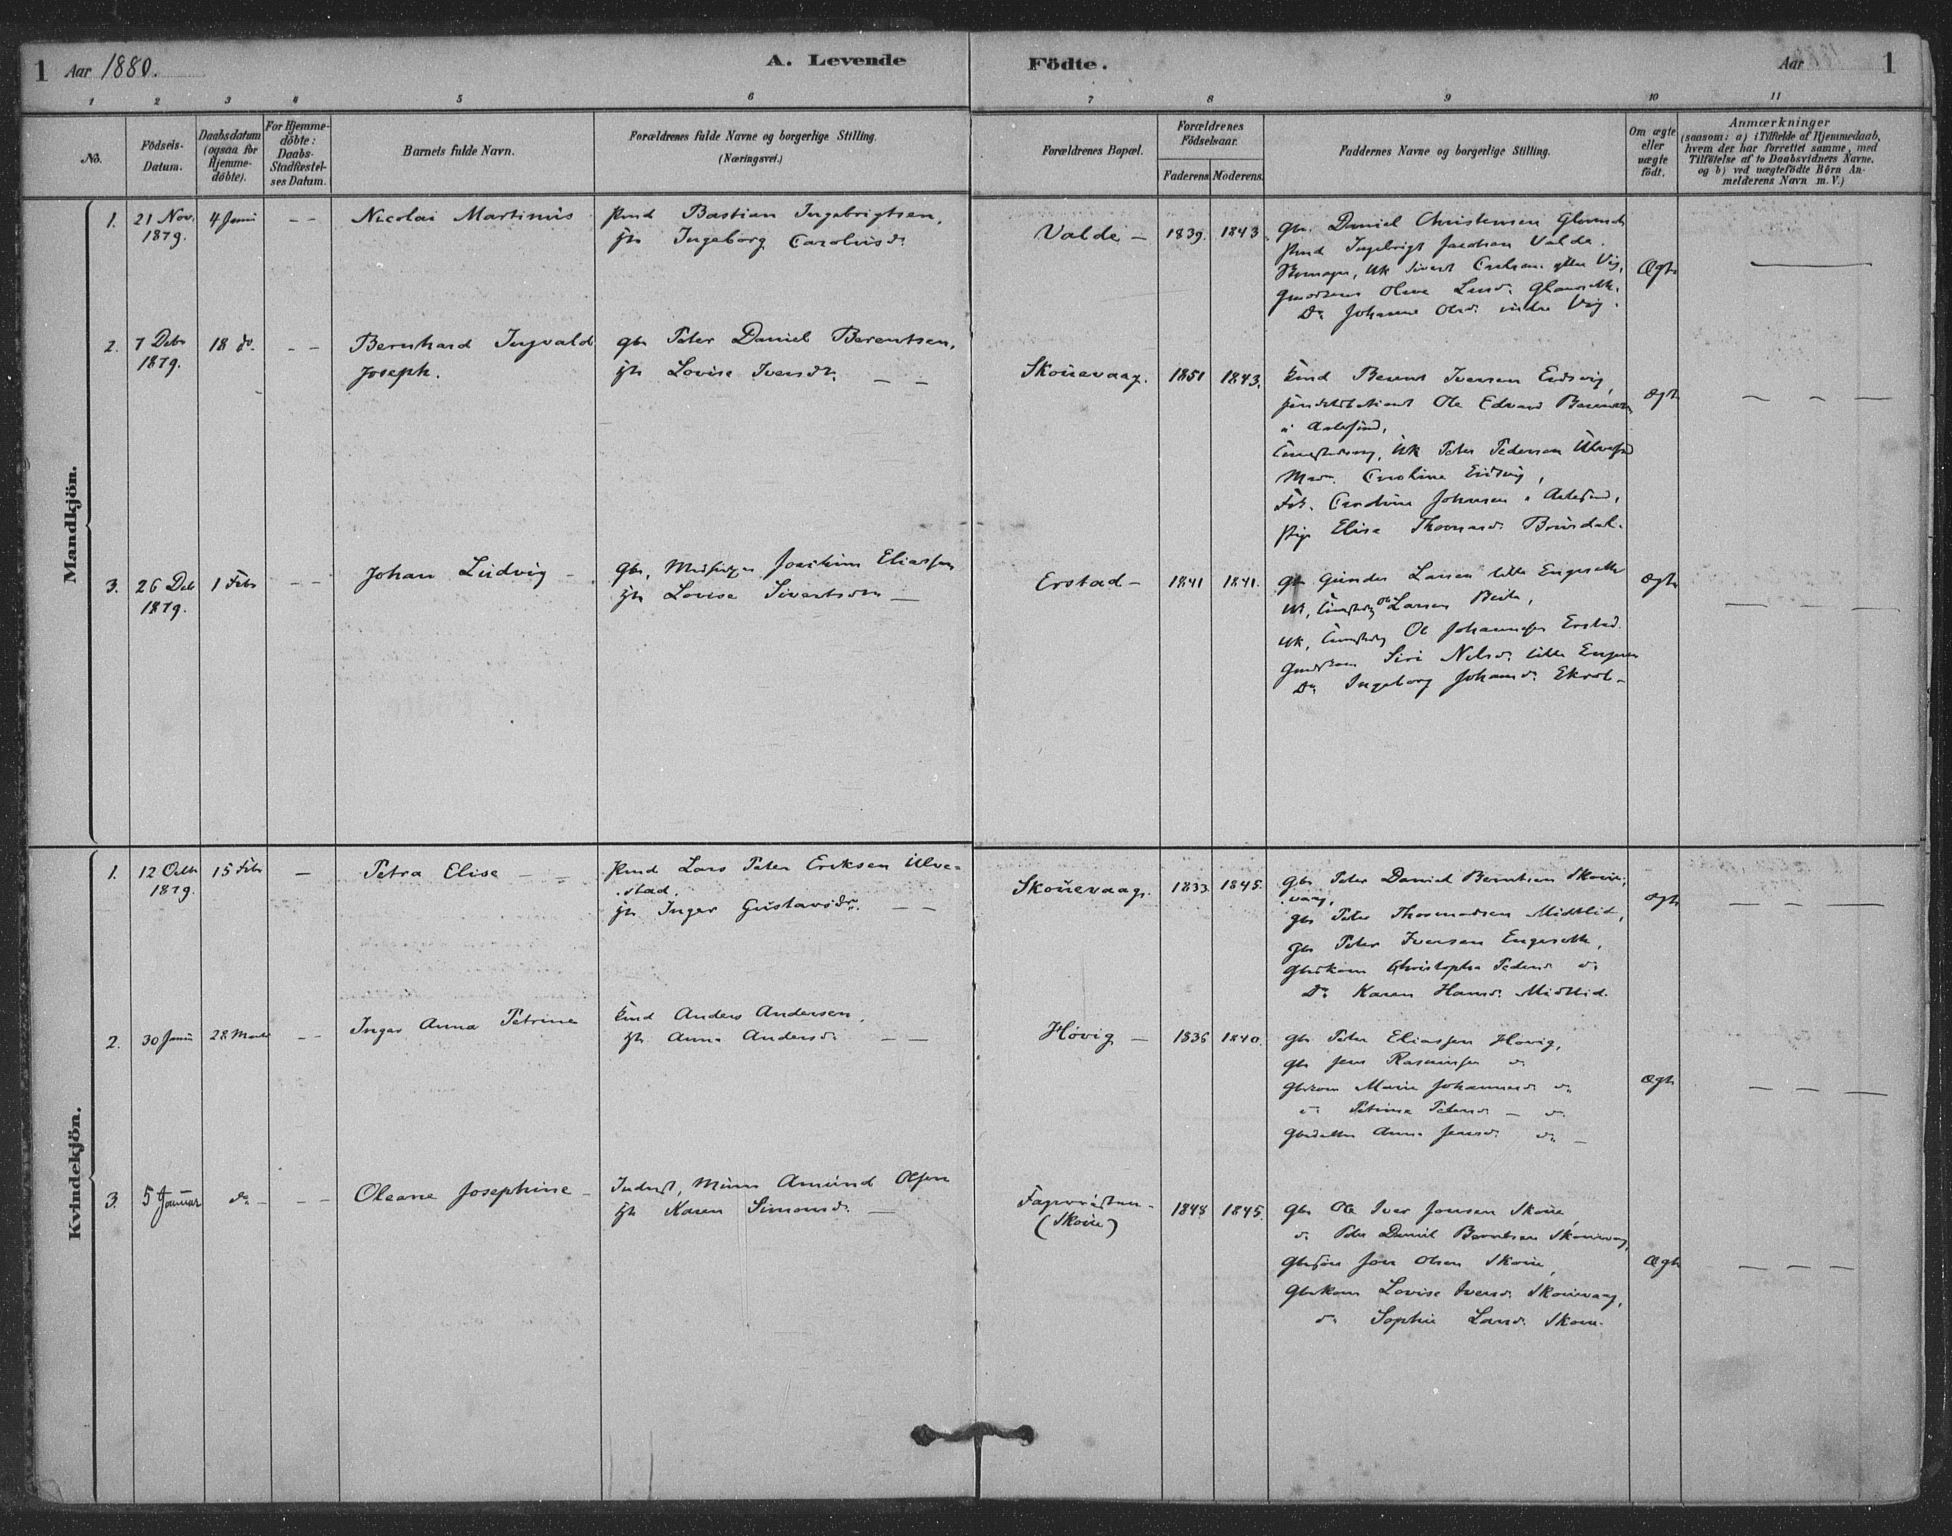 1 Aar 1880. A. Levende Födte. Aar 1
1 2 3 4 5 6 7 8 9 10 11
No.
Födsels-
Datum.
Daabsdatum
(ogsaa for
Hjemme-
döbte).
For Hjemme-
döbte:
Daabs-
Stadfæstel-
ses Datum.
Barnets fulde Navn.
Forældrenes fulde Navne og borgerlige Stilling.
(Næringsvei.)
Forældrenes Bopæl.
Forældrenes
Födselsaar.
Faderens Moderens.
Faddernes Navne og borgerlige Stilling.
Om ægte
eller
uægte
födt.
Anmærkninger
(saasom: a) i Tilfælde af Hjemmedaab,
hvem der har forrettet samme, med
Tilföielse af to Daabsvidners Navne,
og b) ved uægtefödte Börn An-
melderens Navn m. V.)
Mandkjön.
1. 21 Nov.
1879.
4 Janu — —
Nicolai Martinus
Bastian Ingebrigtsen,
Ingeborg Carolusdr
Valde — 1839. 1843.
Gbr. Daniel Christensen
Ingebrigt Jacobsen Valde.
Johanne Olsdr indre Vig.
Ægte
2. 7 Debr
1879.
18 do. — —
Bernhard Ingvald
Joseph.
Gbr Peter Daniel Berentsen,
Lovise Iversdr. — —
Skouevaag. 1851 1843.
Berent Iversen Eidsvig,
Ole Edvard
i Aalesund,
UK Peter Pedersen
Caroline Eidsvig,
Johansen i Aalesund,
Pige Elise
ægte — — —
3. 26 Deb
1879.
1 Febr — —
Johan Ludvig —
Gbr, Joachim Eliassen
Lovise Sivertsdr —
Erstad — 1841 1841.
Gbr Gunder Larsen lille Engesette
UK, Ole Larsen
UK, Ole Johannesen Erstad.
Siri Nilsdr lille
Do Ingeborg Johansdr
ægte — — —
Kvindekjön.
1. 12 Octb
1879.
15 Febr —
Petra Elise — —
Lars Peter Eriksen Ulve-
stad.
Inger Gustavsdr. — —
Skouevaag. 1833 1845.
Gbr Peter Daniel Berntsen Skoue-
vaag,
Gbr Peter Thomassen Midtlid,
Gbr Peter Iversen Engesette,
Gbrkone Christopha Pedersdr do
Do Karen Hansdr Midtlid.
ægte — — —
2. 30 Janu 28 Marts — —
Inger Anna Petrine
Anders Andersen,
Anne Andersdr — —
Hovig — 1836 1840.
Gbr Peter Eliassen Hovig,
Gbr Jens Rasmussen do
Gbrkone Marie Johannesdr do
do Petrine Petersdr — do
Gbrdatter Anne Jensdr do —
Ægte — — —
3. 5 Januar do — — —
Oleane Josephine —
Inderst, Murer Amund Olsen
Karen Simonsdr —
(Skoue) 1848 1845.
Gbr Ole Iver Jonsen Skoue,
do Peter Daniel Berntsen Skouevaag,
Gbrsön Jon Olsen Skoue,
Gbrkone Lovise Iversdr Skouevaag,
do Sophie Larsdr Skoue.
Ægte — — —